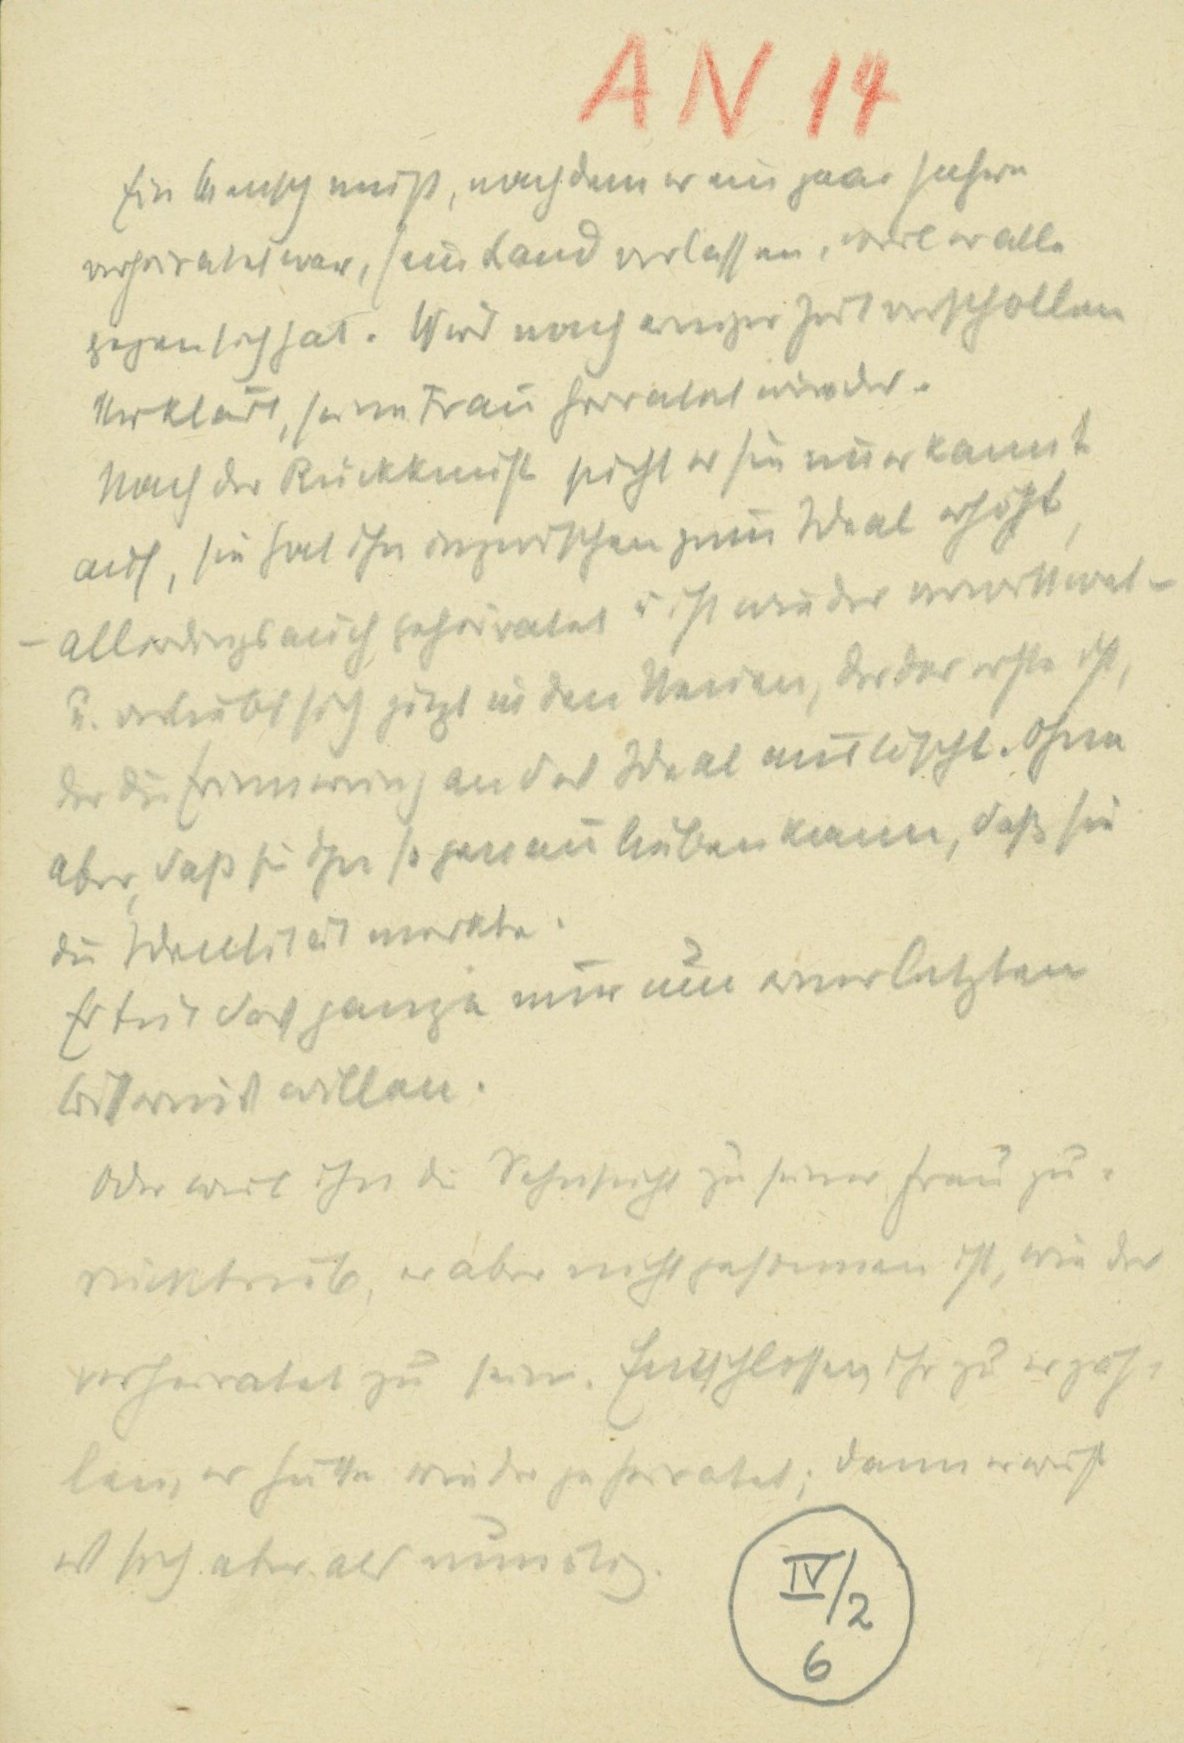 AN 14
Ein Mensch muß, nachdem er ein paar Jahre
verheiratet war, sein Land verlassen, weil er alle
gegen sich hat. Wird nach einiger Zeit verschollen
erklärt, seine Frau heiratet wieder.
Nach der Rückkunft sucht er sie unerkannt
auf, sie hat ihn inzwischen zum Ideal erhöht,
– allerdings auch geheiratet u ist wieder verwittwet –
u. verliebt sich jetzt in den Neuen, der der erste ist,
der die Erinnerung an das Ideal auslöscht. Ohne
aber, daß sie ihn so genau lieben kann, daß sie
die Identität merkte.
Er tut das ganze nur um einer letzten
Bitternis willen.
Oder weil ihn die Sehnsucht zu seiner Frau zu-
rücktrieb, er aber nicht gesonnen ist, wieder
verheiratet zu sein. Entschlossen, ihr zu erzäh-
len, er hätte wieder geheiratet; dann erweist
es sich aber als unnötig.
IV/2
6